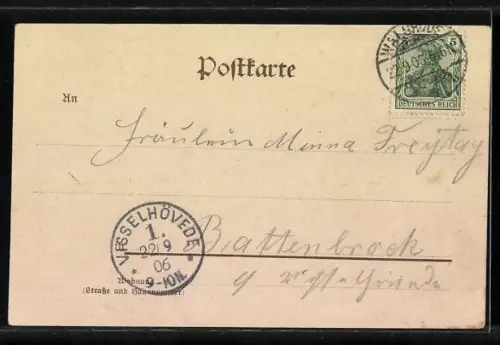 Postkarte
5
DEUTSCHES REICH
An
Fräulein Minna Freytag
VISSELHÖVEDE
1.
22 9
06
9-10N.
Battenbrock
Wohnung
(Straße und Hausnummer)